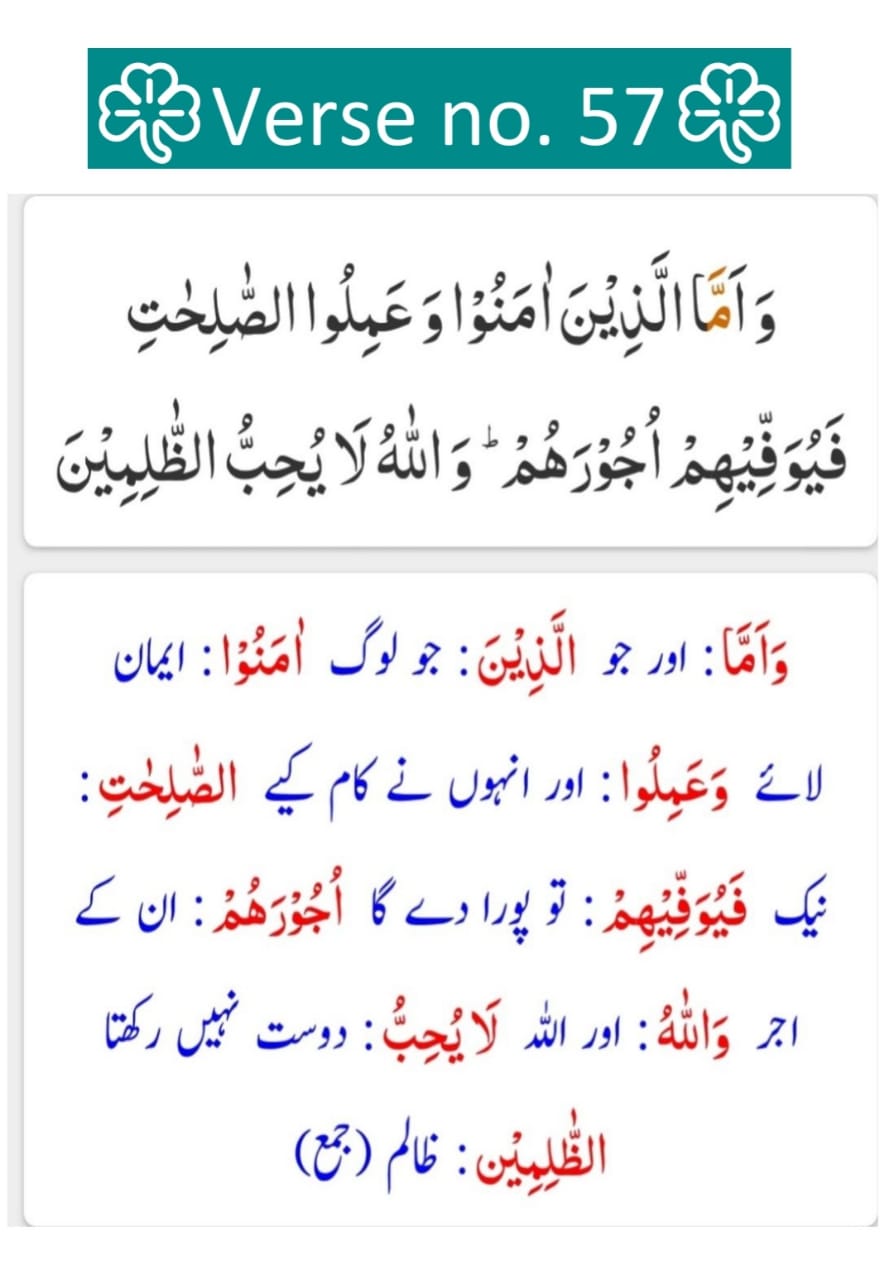 Verse no. 57
وَ اَمَّا الَّذِیْنَ اٰمَنُوْا وَ عَمِلُوا الصّٰلِحٰتِ
فَیُوَفِّیْهِمْ اُجُوْرَهُمْ ؕ وَ اللّٰهُ لَا یُحِبُّ الظّٰلِمِیْنَ
وَاَمَّا : اور جو الَّذِیْنَ : جو لوگ اٰمَنُوْا : ایمان
لائے وَعَمِلُوا : اور انہوں نے کام کیے الصّٰلِحٰتِ :
نیک فَیُوَفِّیْهِمْ : تو پورا دے گا اُجُوْرَهُمْ : ان کے
اجر وَاللّٰهُ : اور اللہ لَا یُحِبُّ : دوست نہیں رکھتا
الظّٰلِمِیْن : ظالم (جمع)